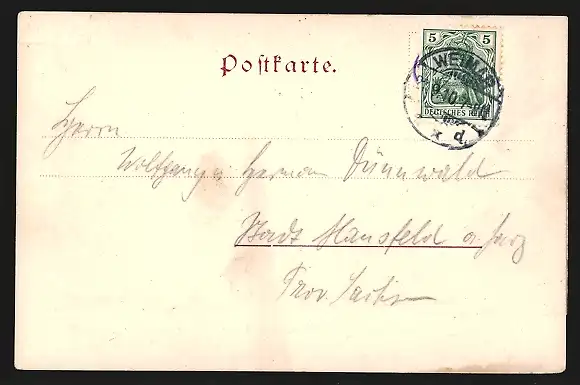 Postkarte.
5 5
WEIMAR
DEUTSCHES REICH
* d.
Herrn
Wolfgang u Herman Dünnwald
Stadt Mansfeld a. Harz
Prov. Sachsen